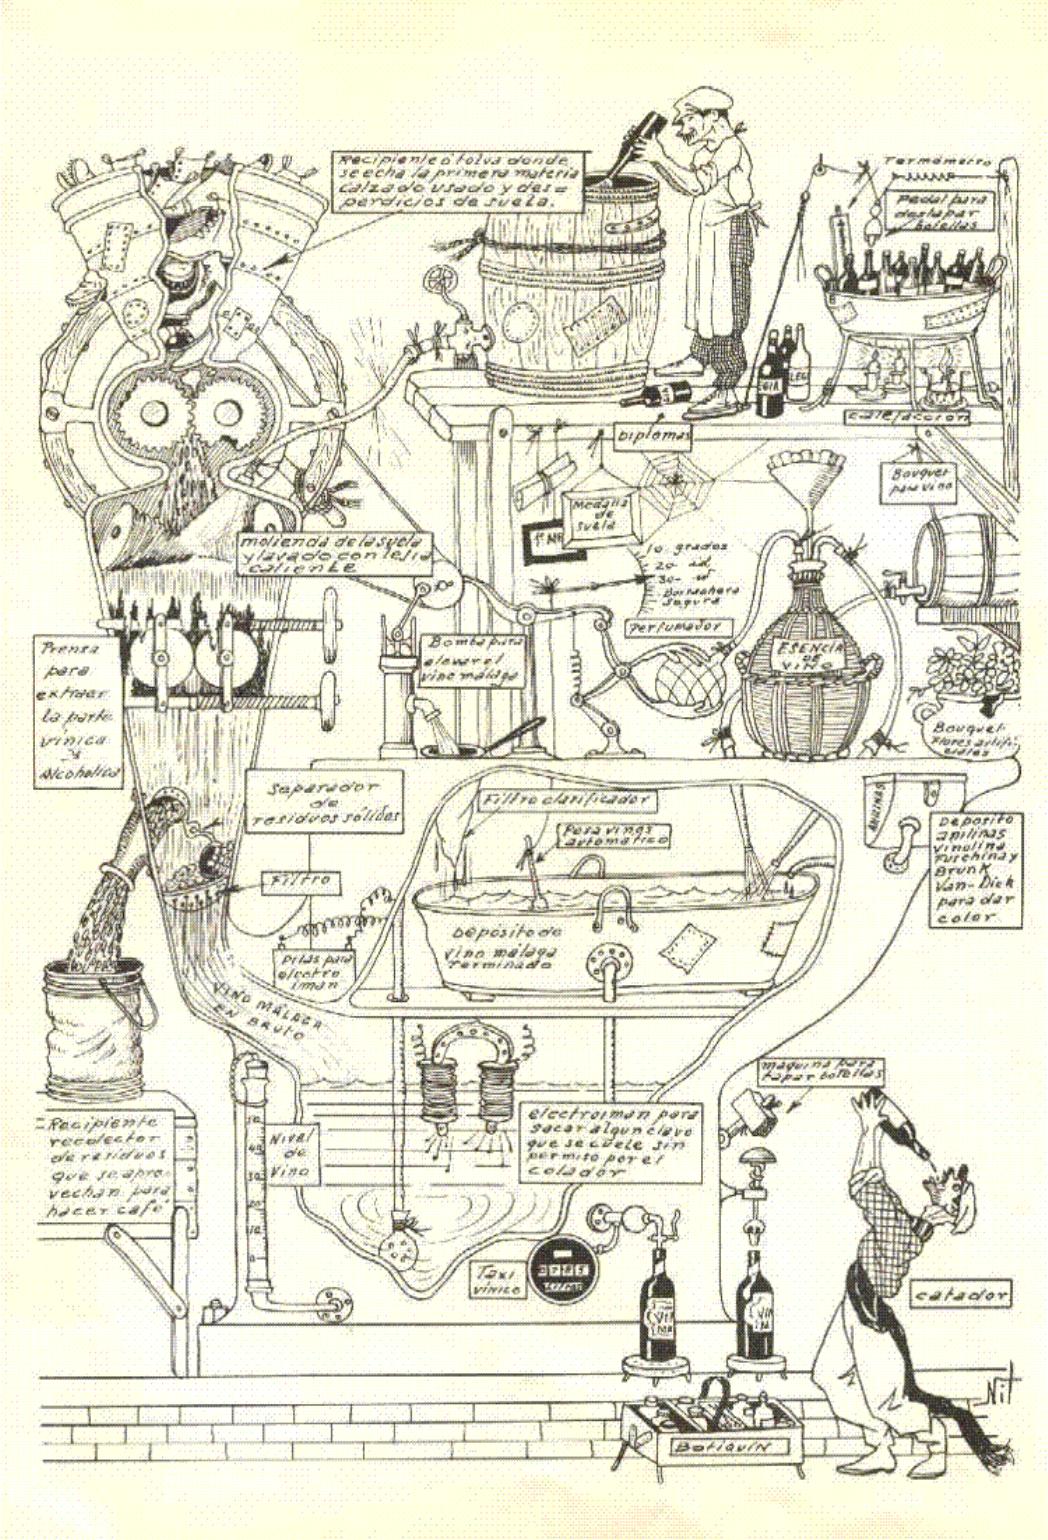 Recipiente ó tolva donde
se echa la primera materia
calzado usado y des=
perdicios de suela.
Termómetro
Pedal para
destapar
botellas
calefacción
Diplomas
Medalla
de
suela
Bouquet
para vino
molienda de la suela
y lavado con lejia
caliente
10 grados
20- id.
30- id
Borrachera
segura
Perfumador
ESENCIA
DE
VINO
Bomba para
elevar el
vino málaga
Prensa
para
extraer
la parte
vinica
y
Alcoholica
Bouquet
Flores artifi-
ciales
Separador
de
residuos sólidos
Filtro clarificador
Pesa vinos
automático
ANILINAS
Deposito
anilinas
vinolina
Fuschina y
Brunk
Van-Dick
para dar
color
Filtro
Deposito de
vino málaga
Terminado
Pilas para
electro
iman
VINO MÁLAGA
EN BRUTO
maquina para
tapar botellas
Recipiente
recolector
de residuos
que se apro-
vechan para
hacer café
50
40
30
20
10
0
Nivel
de
Vino
electroiman para
sacar algun clavo
que se cuele sin
permiso por el
colador
Taxi
vinico
Litros
catador
Nit
Botiquín